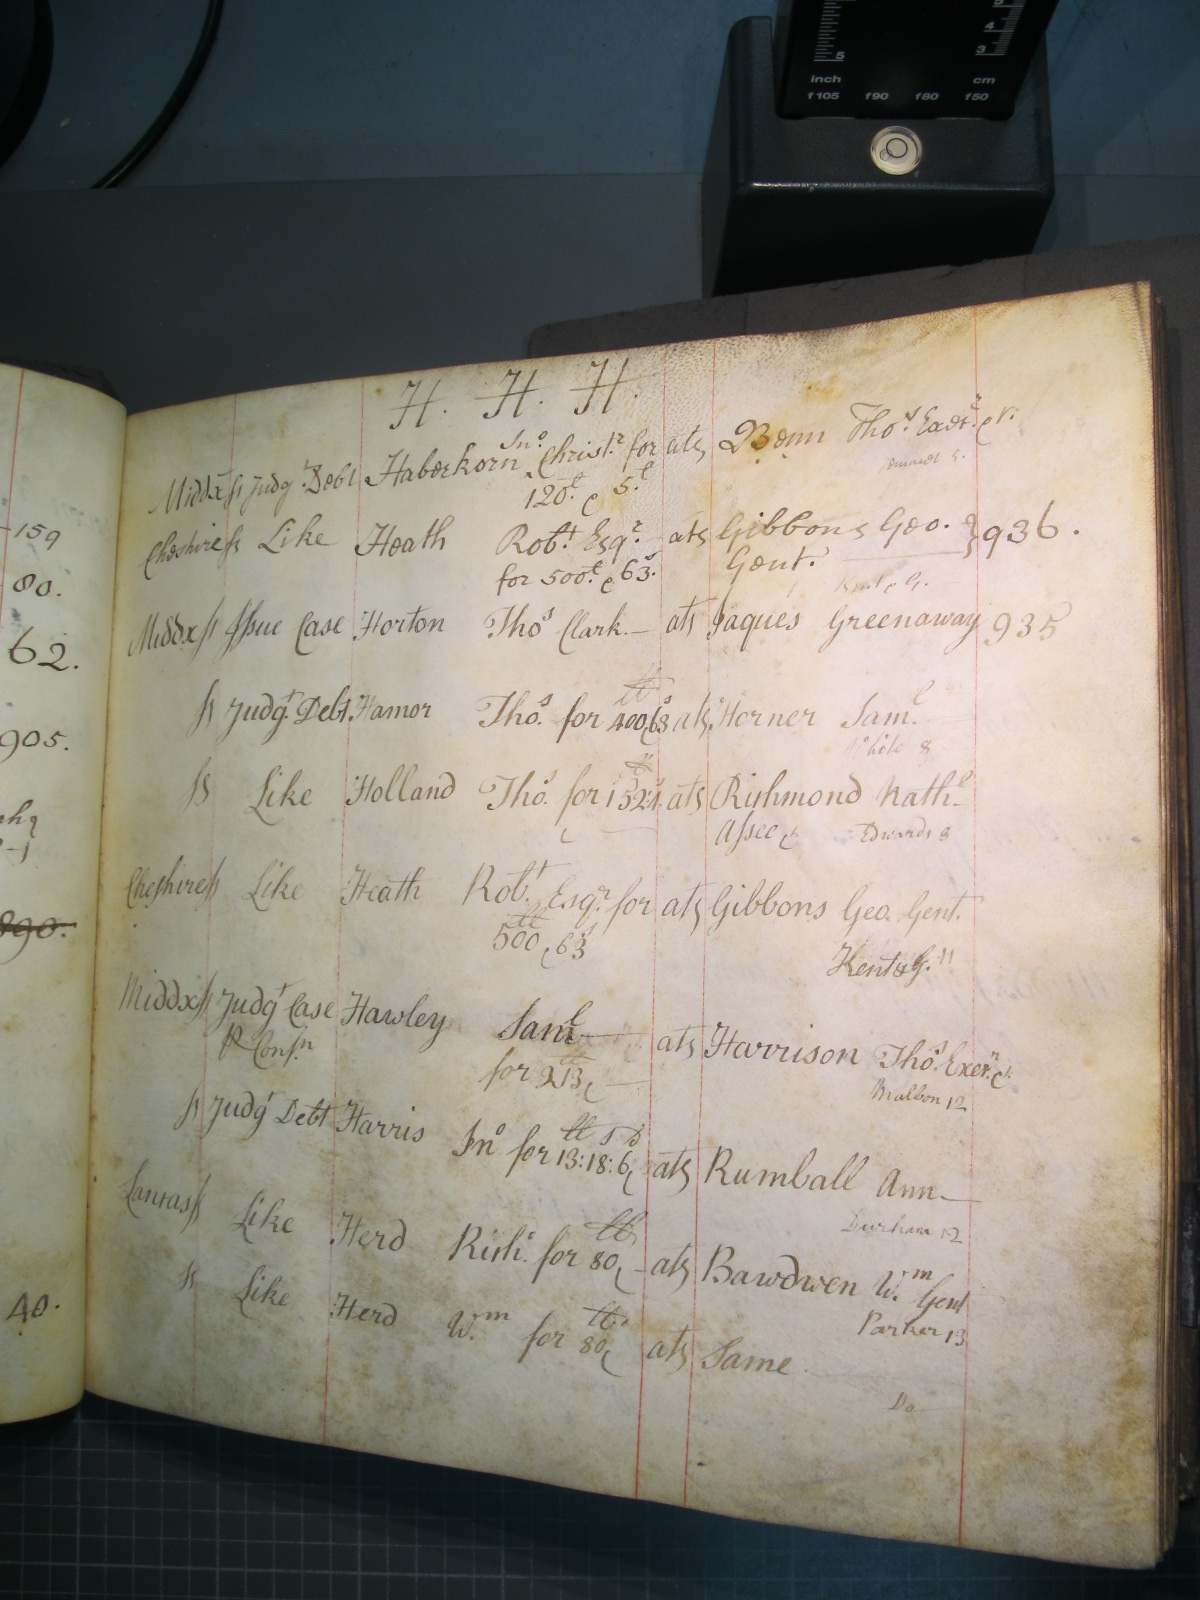 5
4
3
inch cm
f105 f90 f80 f50
-159
80.
62.
905.
890.
40.
H. H. H.
Middx ss Judgt Debt Haberkorn Jno Christr for ats Benn Thos Exôr &c
120£ & 5£
Cheshire ss Like Heath Robt Esqr ats Gibbons Geo. } 936.
for 500£ & 63s. Gent.
Middx ss Issue Case Horton Thos Clark.— ats Jaques Greenaway 935
ss Judgt. Debt. Hamor Thos. for 400 & 63s ats. Horner Saml.
White 8
ss Like Holland Thos. for 152:1 ats Richmond Nathl.
Assee & Edwards 8
Cheshire ss Like Heath Robt. Esqr. for ats Gibbons Geo. Gent.
500 & 63s
Kent & G. 11
Middx ss Judgt Case Hawley Saml ats Harrison Thos. Exer. &c
P Consn for 213 &
Malbon 12
ss Judgt Debt Harris Jno for 13:18:6 & ats Rumball Ann—
Durham 12
Lancas ss Like Herd Richd. for 80 & ats Bawdwen Wm. Gent
Parker 13
ss Like Herd Wm. for 80 & ats Same
Do